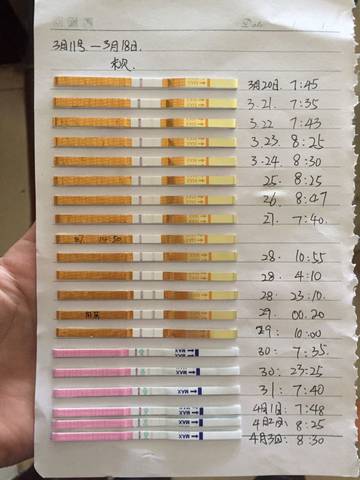 Date
3月11号—3月18日.
3月20日. 7:45
3.21. 7:35
3.22 7:43
3.23. 8:25
3.24. 8:30
25. 8:25
26. 8:47
27. 7:40.
27 14:50
28. 10:55
28. 4:10
28. 23:10.
29. 00.20
29: 10:00
30: 7:35.
30: 23:25
MAX
31: 7:40
MAX
4月1日: 7:48
MAX
4月2日: 8:25
MAX
4月3日: 8:30
MAX